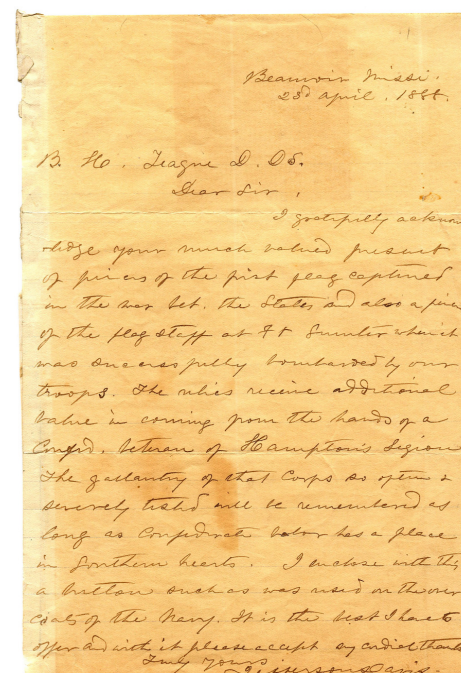 Beauvoir Missi.
23d April. 1888.
B. H. Teague D. D S.
Dear Sir,
I gratefully acknow
ledge your much valued present
of pieces of the first flag captured
in the war bet. the States and also a piece
of the flag staff at Ft Sumter which
was successfully bombarded by our
troops. The relics receive additional
value in coming from the hands of a
Confed. Veteran of Hampton's Legion
The gallantry of that Corps so often &
severely tested will be remembered as
long as Confederate valor has a place
in Southern hearts. I inclose with this
a button such as was used on the over
coats of the Navy. It is the best I have to
offer and with it please accept my cordial thanks
Truly Yours
Jefferson Davis.